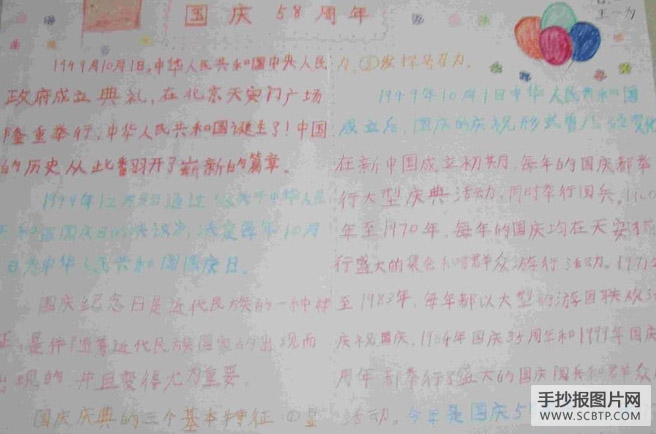 国庆58周年
王一为
1949年10月1日,中华人民共和国中央人民
政府成立典礼,在北京天安门广场
隆重举行,中华人民共和国诞生了!中国
的历史从此翻开了崭新的篇章。
1949年12月
国庆日的决议,决定每年10月
日为中华人民共和国国庆日。
国庆纪念日是近代民族的一种特
是伴随着近代民族国家的出现而
出现的 并且变得尤为重要。
国庆庆典的三个基本特征 ①显
力,②发挥号召力。
1949年10月1日中华人民共和国
成立后,国庆的庆祝形式曾几经变化
在新中国成立初期,每年的国庆都举
行大型庆典活动,同时举行阅兵,
年至1970年,每年的国庆均在天安门
行盛大的集会和群众游行活动。1971
至1983年,每年都以大型的游园联欢活
庆祝国庆,1984年国庆35周年和1999年国庆
周年都举行了盛大的国庆阅兵和群众
活动。今年是国庆5
手抄报图片网
WWW.SCBTP.COM